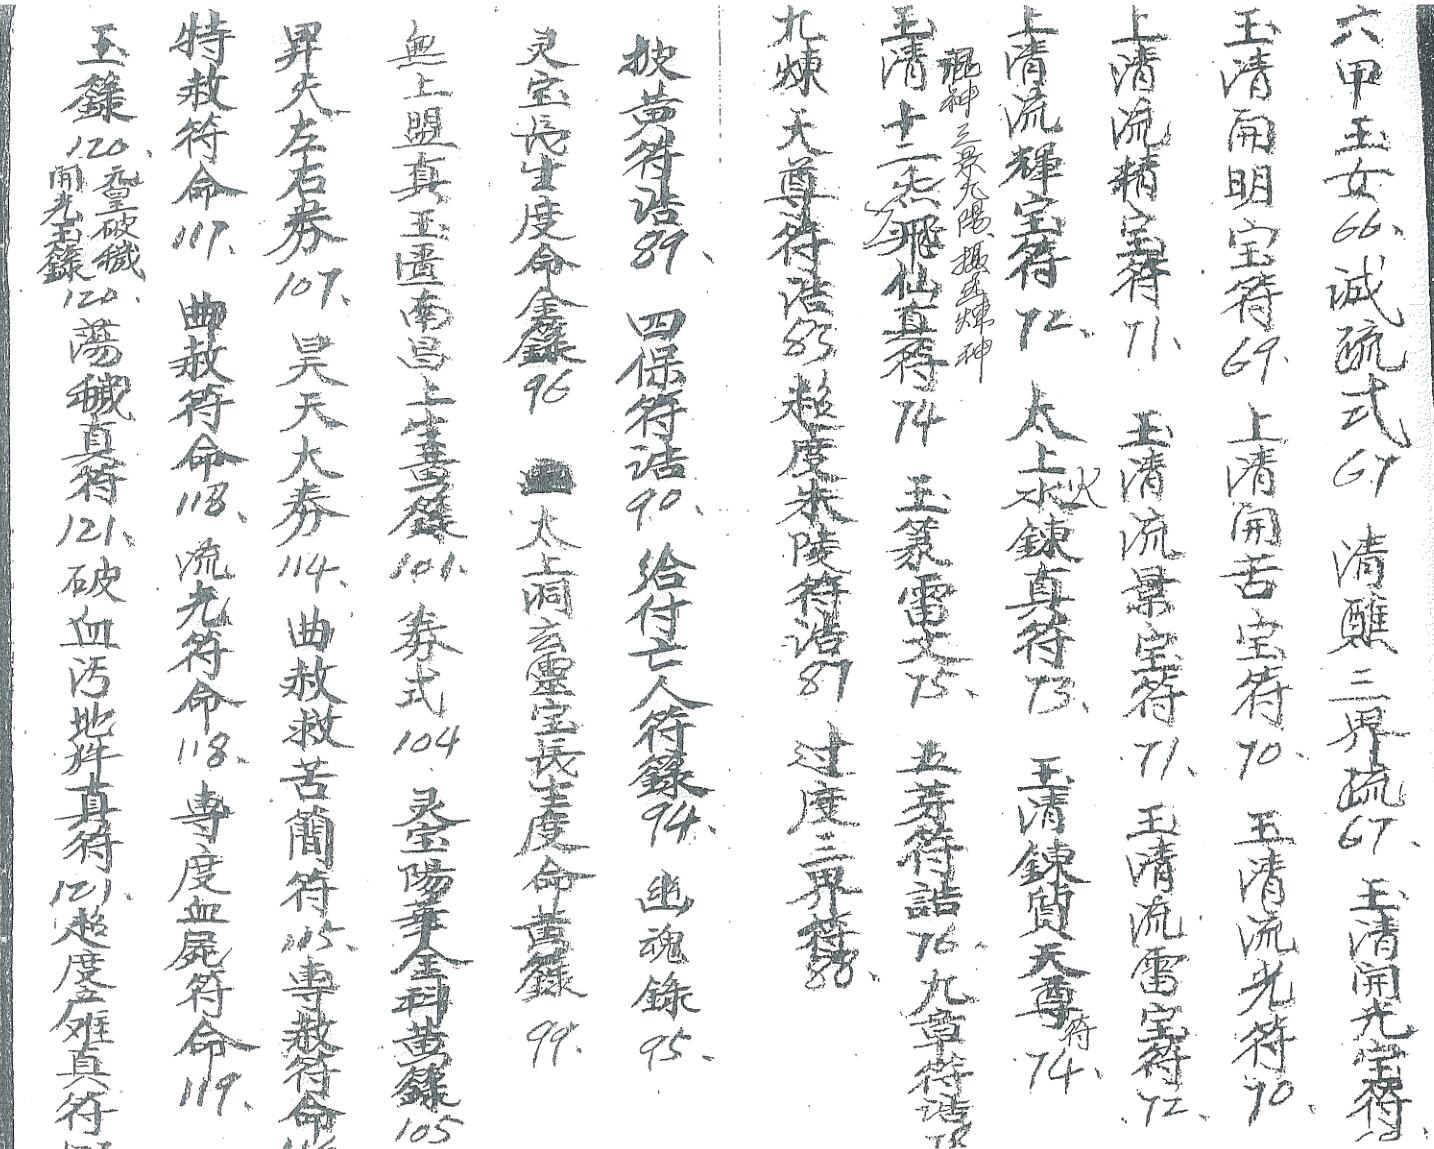 六甲玉女66、誡疏式67 清醮三界疏67、玉清開光宝符
玉清開明宝符69、上清開苦宝符70、玉清流光符70、
上清流精宝符71、玉清流景宝符71、玉清流雷宝符72、
上清流輝宝符72、太上水火鍊真符73、玉清鍊質天尊符74、
玉清十二 飛仙真符74 玉篆雷文75、五芽符誥76、九章符誥78
混神三景九陽 煉神
九煉天尊符誥85 超度朱陵符誥87 过度三界符88、
披黄符誥89、四保符誥90、給付亡人符籙94、幽魂籙95、
灵宝長生度命金籙96 太上洞玄靈宝長生度命黄籙99、
無上盟真玉匱南昌上宫黄籙101、券式104 灵宝陽華金科黄籙105
昇天左右券107、昊天大券114、曲赦救苦簡符115、専赦符命116
特赦符命117、曲赦符命118、流光符命118、専度血屍符命119、
玉籙120、元皇破穢開光玉籙120、蕩穢真符121、破血汚地 真符121、超度産难真符